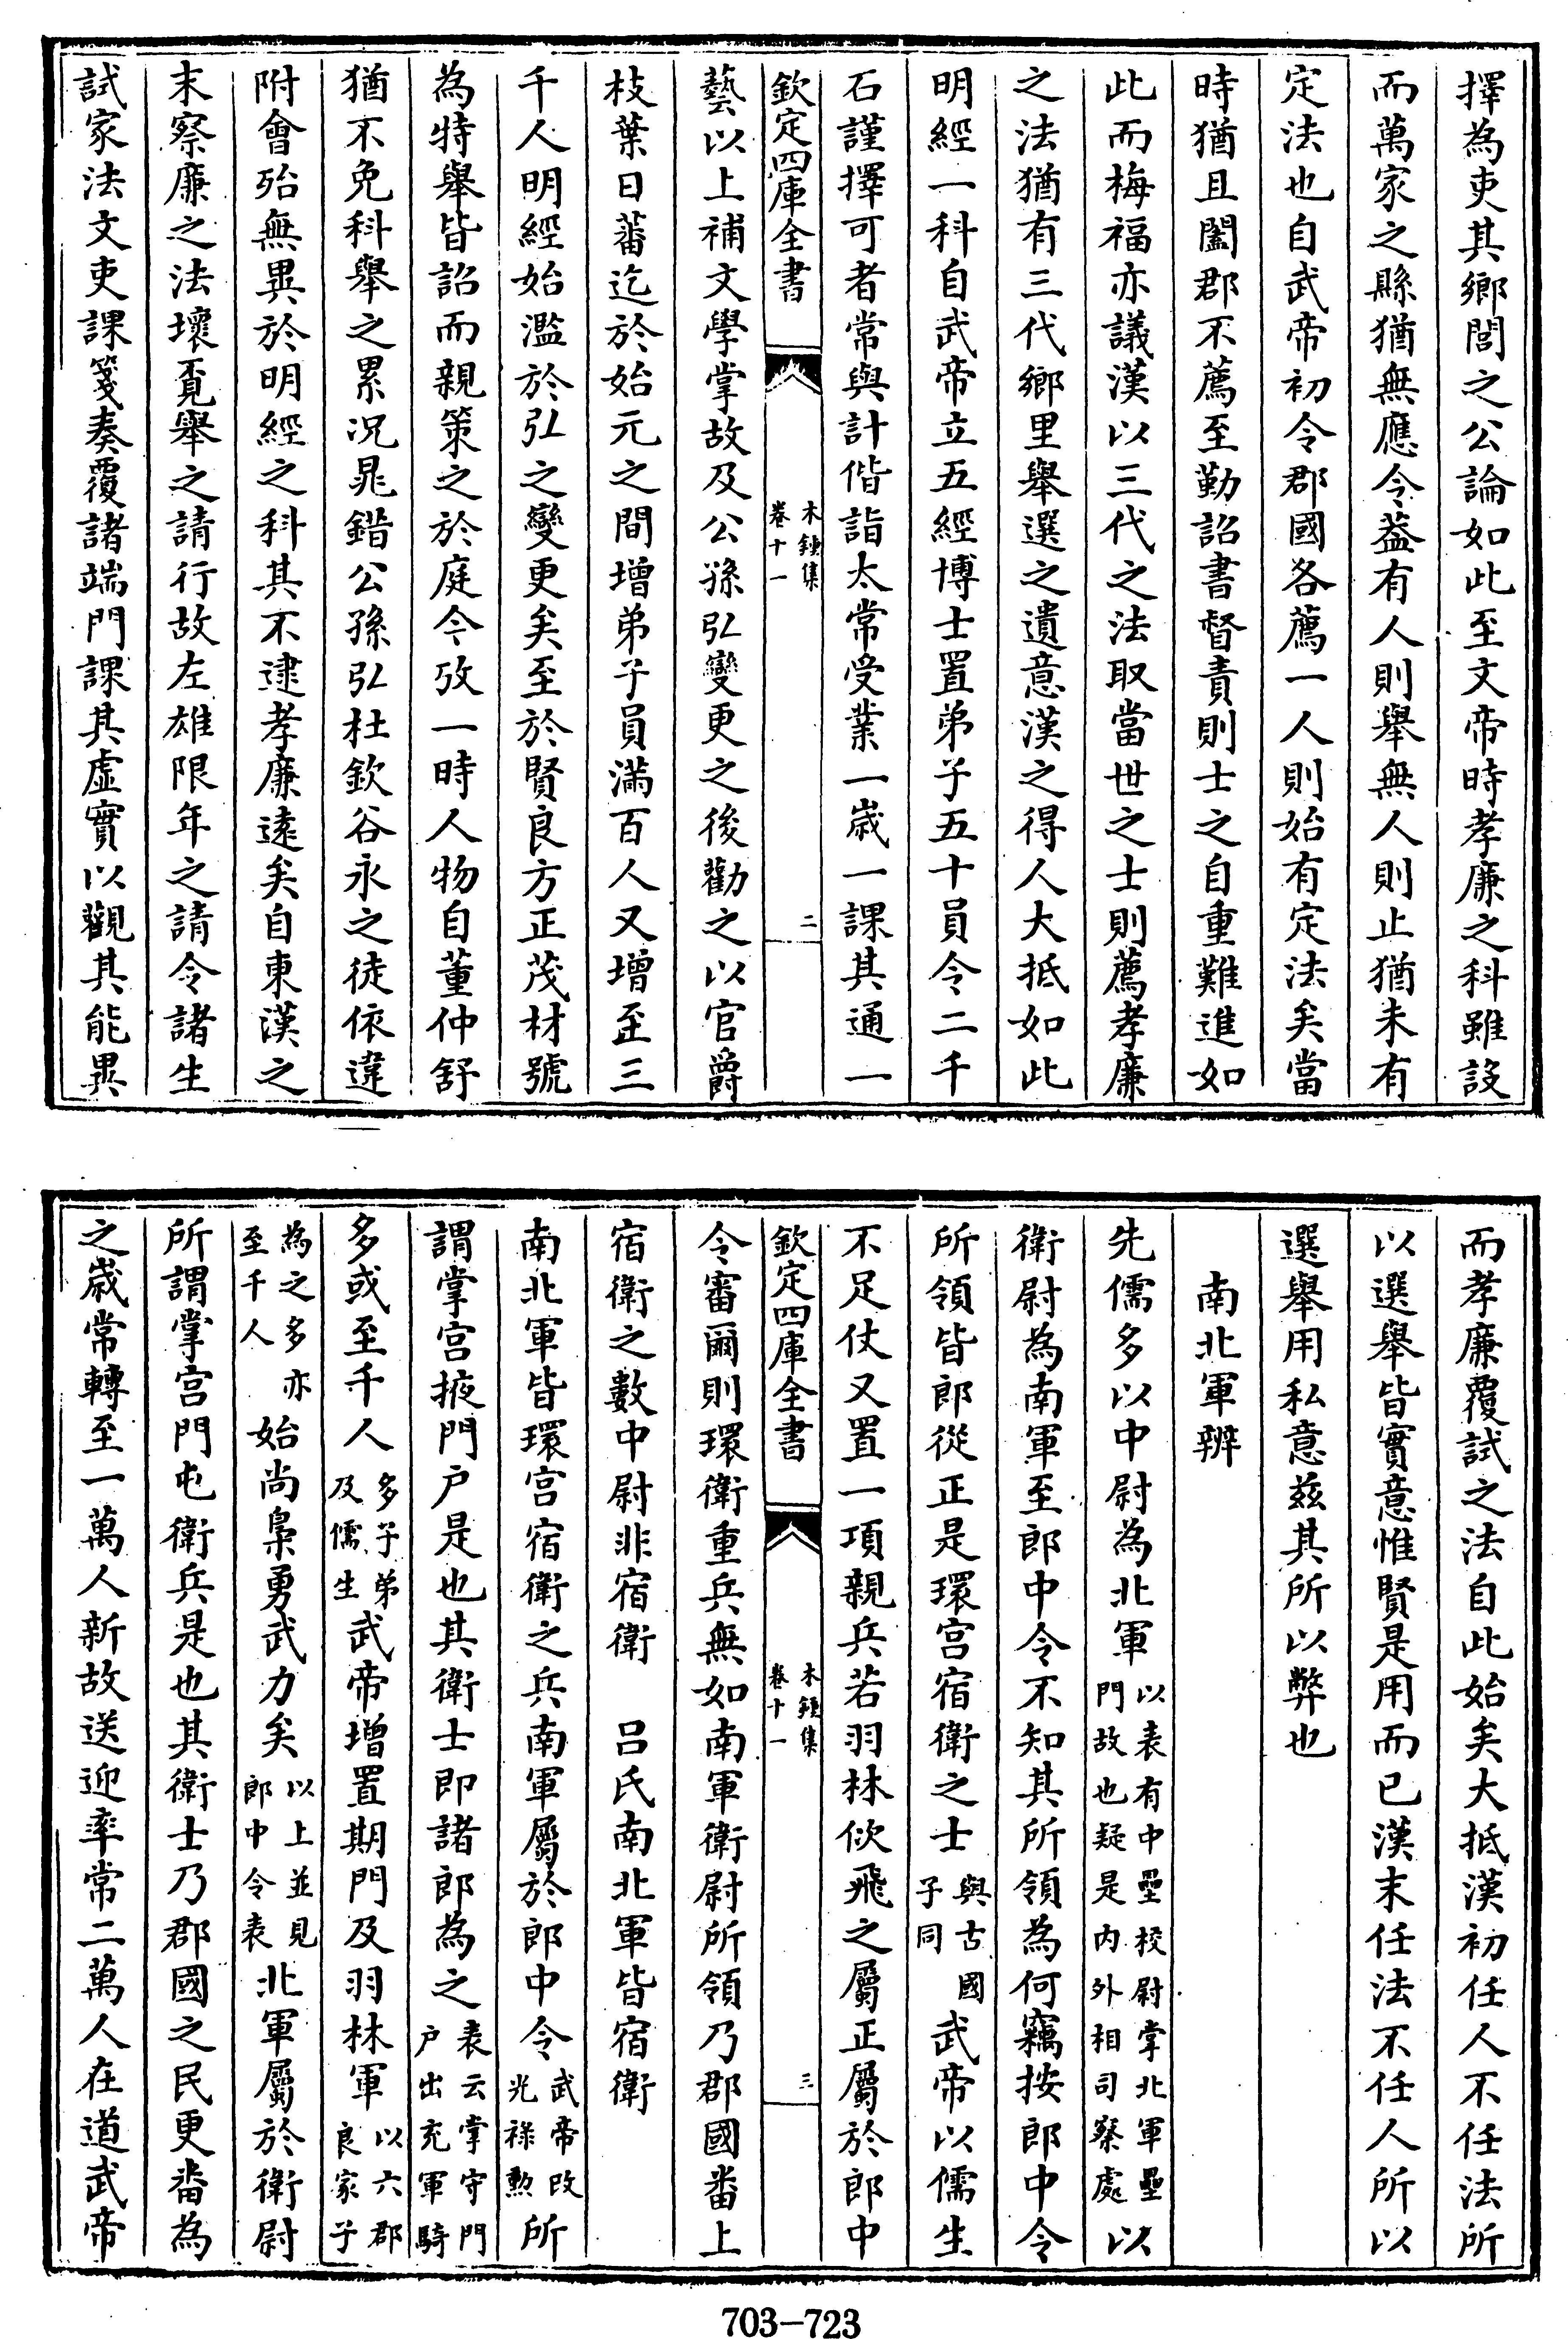 擇為吏其鄉閭之公論如此至文帝時孝廉之科雖設
而萬家之縣猶無應令葢有人則舉無人則止猶未有
定法也自武帝初令郡國各薦一人則始有定法矣當
時猶且闔郡不薦至勤詔書督責則士之自重難進如
此而梅福亦議漢以三代之法取當世之士則薦孝廉
之法猶有三代鄉里舉選之遺意漢之得人大抵如此
明經一科自武帝立五經博士置弟子五十員令二千
石謹擇可者常與計偕詣太常受業一歲一課其通一
欽定四庫全書
木鍾集
卷十一
二
藝以上補文學掌故及公孫弘變更之後勸之以官爵
枝葉日蕃迄於始元之間增弟子員滿百人又增至三
千人明經始濫於弘之變更矣至於賢良方正茂材號
為特舉皆詔而親策之於庭今攷一時人物自董仲舒
猶不免科舉之累況晁錯公孫弘杜欽谷永之徒依違
附會殆無異於明經之科其不逮孝廉遠矣自東漢之
末察廉之法壞覔舉之請行故左雄限年之請令諸生
試家法文吏課箋奏覆諸端門課其虛實以觀其能異
而孝廉覆試之法自此始矣大抵漢初任人不任法所
以選舉皆實意惟賢是用而已漢末任法不任人所以
選舉用私意茲其所以弊也
南北軍辨
先儒多以中尉為北軍以表有中壘校尉掌北軍壘門故也疑是內外相司察處以
衛尉為南軍至郎中令不知其所領為何竊按郎中令
所領皆郎從正是環宫宿衛之士與古國子同武帝以儒生
不足仗又置一項親兵若羽林佽飛之屬正屬於郎中
欽定四庫全書
木鍾集
卷十一
三
令審爾則環衛重兵無如南軍衛尉所領乃郡國番上
宿衛之數中尉非宿衛 吕氏南北軍皆宿衛
南北軍皆環宫宿衛之兵南軍屬於郎中令武帝改光祿勲所
謂掌宫掖門户是也其衛士即諸郎為之表云掌守門户出充軍騎
多或至千人多子弟及儒生武帝增置期門及羽林軍以六郡良家子
為之多亦至千人始尚梟勇武力矣以上並見郎中令表北軍屬於衛尉
所謂掌宫門屯衛兵是也其衛士乃郡國之民更畨為
之歲常轉至一萬人新故送迎率常二萬人在道武帝
703-723